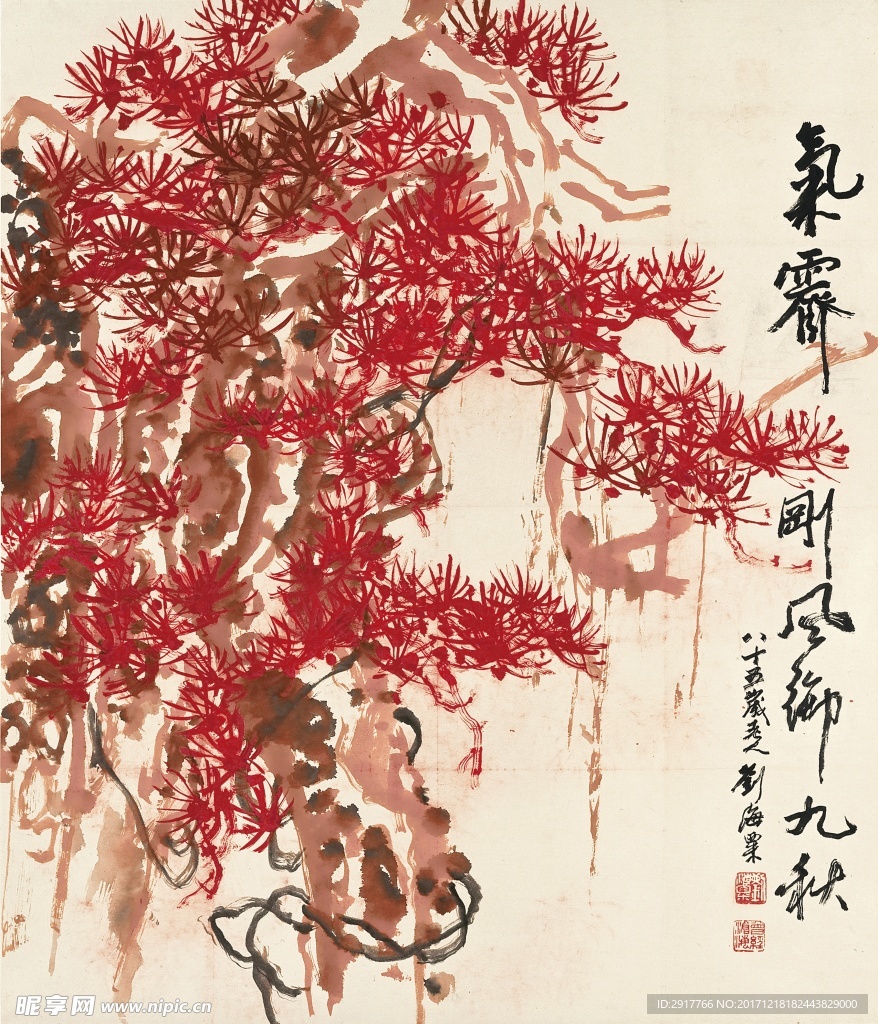 氣霽剛風御九秋
八十五歲老人劉海粟
劉海粟
曾經滄海
昵享网 www.nipic.cn
ID:2917766 NO:20171218182443829000